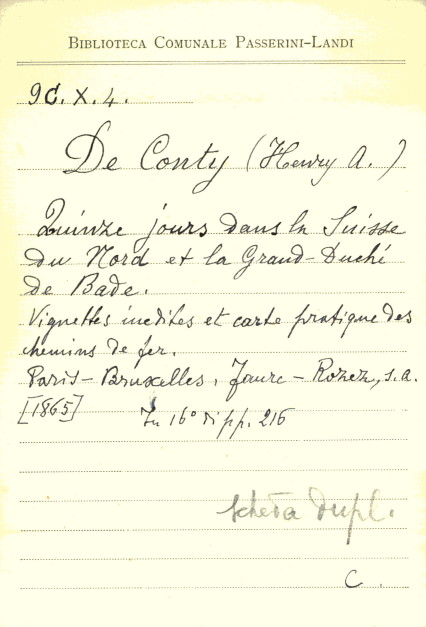 BIBLIOTECA COMUNALE PASSERINI-LANDI
9C. X. 4.
De Conty (Henry A. )
Quinze jours dans la Suisse
du Nord et la Grand-Duché
de Bade.
Vignettes inedites et carte pratique des
chemins de fer.
Paris - Bruxelles, Faure - Rozez, s.a.
[1865] In 16° di pp. 216
scheda dupl.
C.